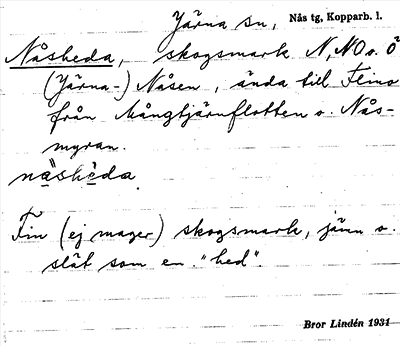 Järna sn, Nås tg, Kopparb. l.
Nåsheda, skogsmark N, NO o. Ö
(Järna-) Nåsen, ända till Flino
från Mångtjärnflotten o. Nås-
myran.
nåshèda
Fin (ej mager) skogsmark, jämn o.
slät som en "hed".
Bror Lindén 1931